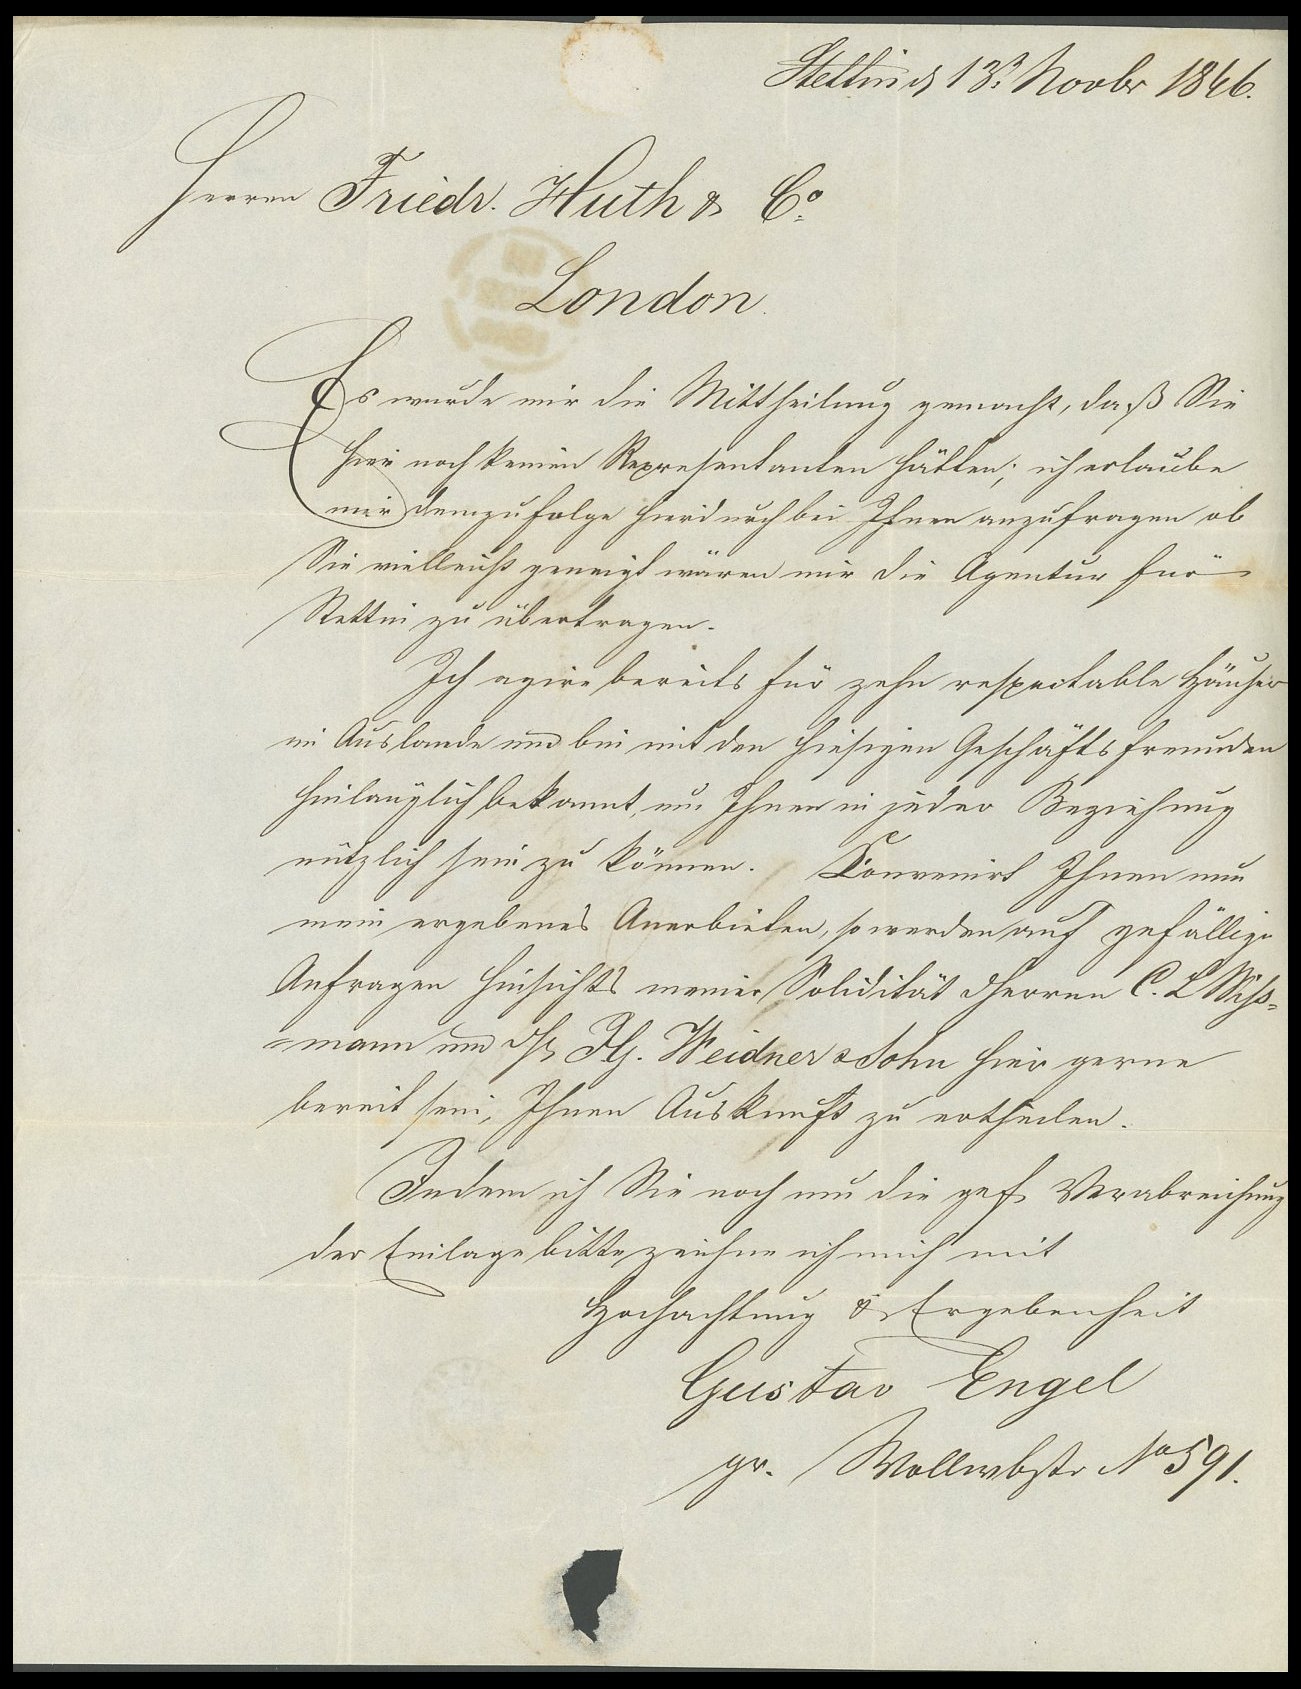 Stettin d 13ᵗ Novbr 1846.
Herren Friedr. Huth & Cº
London.
Es wurde mir die Mittheilung gemacht, daß Sie
hier noch keinen Representanten hätten; ich erlaube
mir demzufolge hierdurch bei Ihnen anzufragen ob
Sie vielleicht geneigt wären mir die Agentur für
Stettin zu übertragen.
Ich agire bereits für zehn respectable Häuser
im Auslande und bin mit den hiesigen Geschäftsfreunden
hinlänglich bekannt, um Ihnen in jeder Beziehung
nützlich sein zu können. Convenirt Ihnen nun
mein ergebenes Anerbieten, so werden auf gefällige
Anfragen hinsichts meiner Solidität dHerren C. L
=mann und Weidner & Sohn hier gerne
bereit sein, Ihnen Auskunft zu ertheilen.
Indem ich Sie noch um die gef. Verabreichung
der Einlage bitte zeichne ich mich mit
Hochachtung & Ergebenheit
Gustav Engel
gr. Wollwbstr Nº 591.